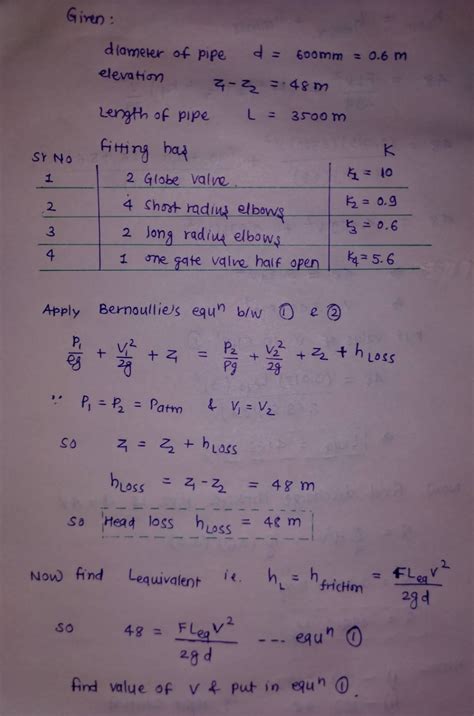 Given :
diameter of pipe d = 600mm = 0.6 m
elevation z₁-z₂ = 48 m
Length of pipe L = 3500 m
Sr No fitting has K
1 2 Globe valve K₁ = 10
2 4 Short radius elbows K₂ = 0.9
3 2 long radius elbows K₃ = 0.6
4 1 one gate valve half open K₄ = 5.6
Apply Bernoullie's equⁿ b/w ① & ②
P₁/ρg + V₁²/2g + z₁ = P₂/ρg + V₂²/2g + z₂ + hLoss
∵ P₁ = P₂ = Patm & V₁ = V₂
so z₁ = z₂ + hLoss
hLoss = z₁ - z₂ = 48 m
so Head loss hLoss = 48 m
Now find Lequivalent i.e. hL = hfriction = FLeqV²/2gd
so 48 = FLeqV²/2gd --- equⁿ ①
find value of V & put in equⁿ ①.